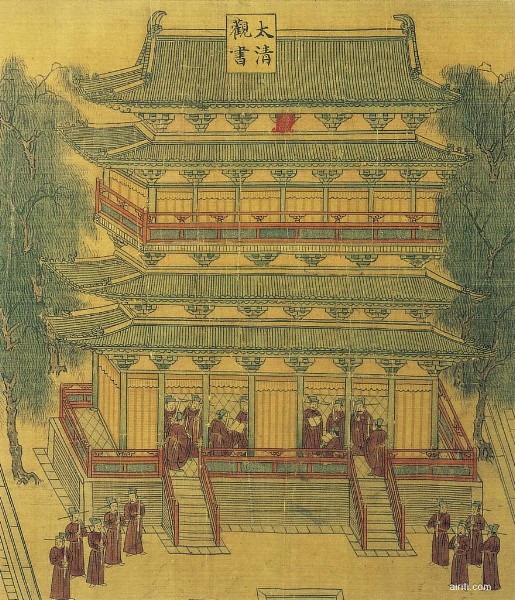 太清
觀書
airiti.com